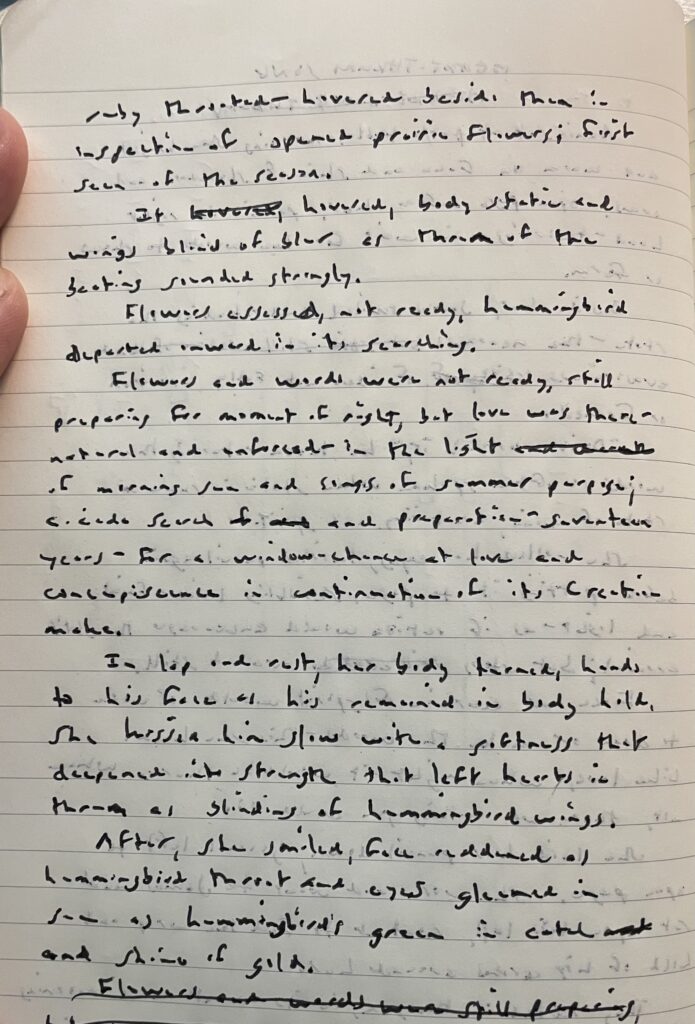 ruby throated – hovered beside them in
inspection of opened prairie flowers; first
seen of the season.
It hovered, hovered, body static and
wings blind of blur as thrum of the
beating sounded strongly.
Flowers assessed, not ready, hummingbird
departed onward in its searching.
Flowers and words were not ready, still
preparing for moment of right, but love was there –
natural and unforced – in the light and
of morning sun and songs of summer purpose;
cicada search and preparation – seventeen
years – for a window-chance at love and
concupiscence in continuation of its Creation
make.
In lap and rest, her body turned, hands
to his face as his remained in body hold.
She kissed him slow with a softness that
deepened into strength that left hearts in
thrum as blinding of hummingbird wings.
After, she smiled, face reddened as
hummingbird throat and eyes gleamed in
sun as hummingbird's green in catch
and shine of gold.
Flowers and words were still preparing,